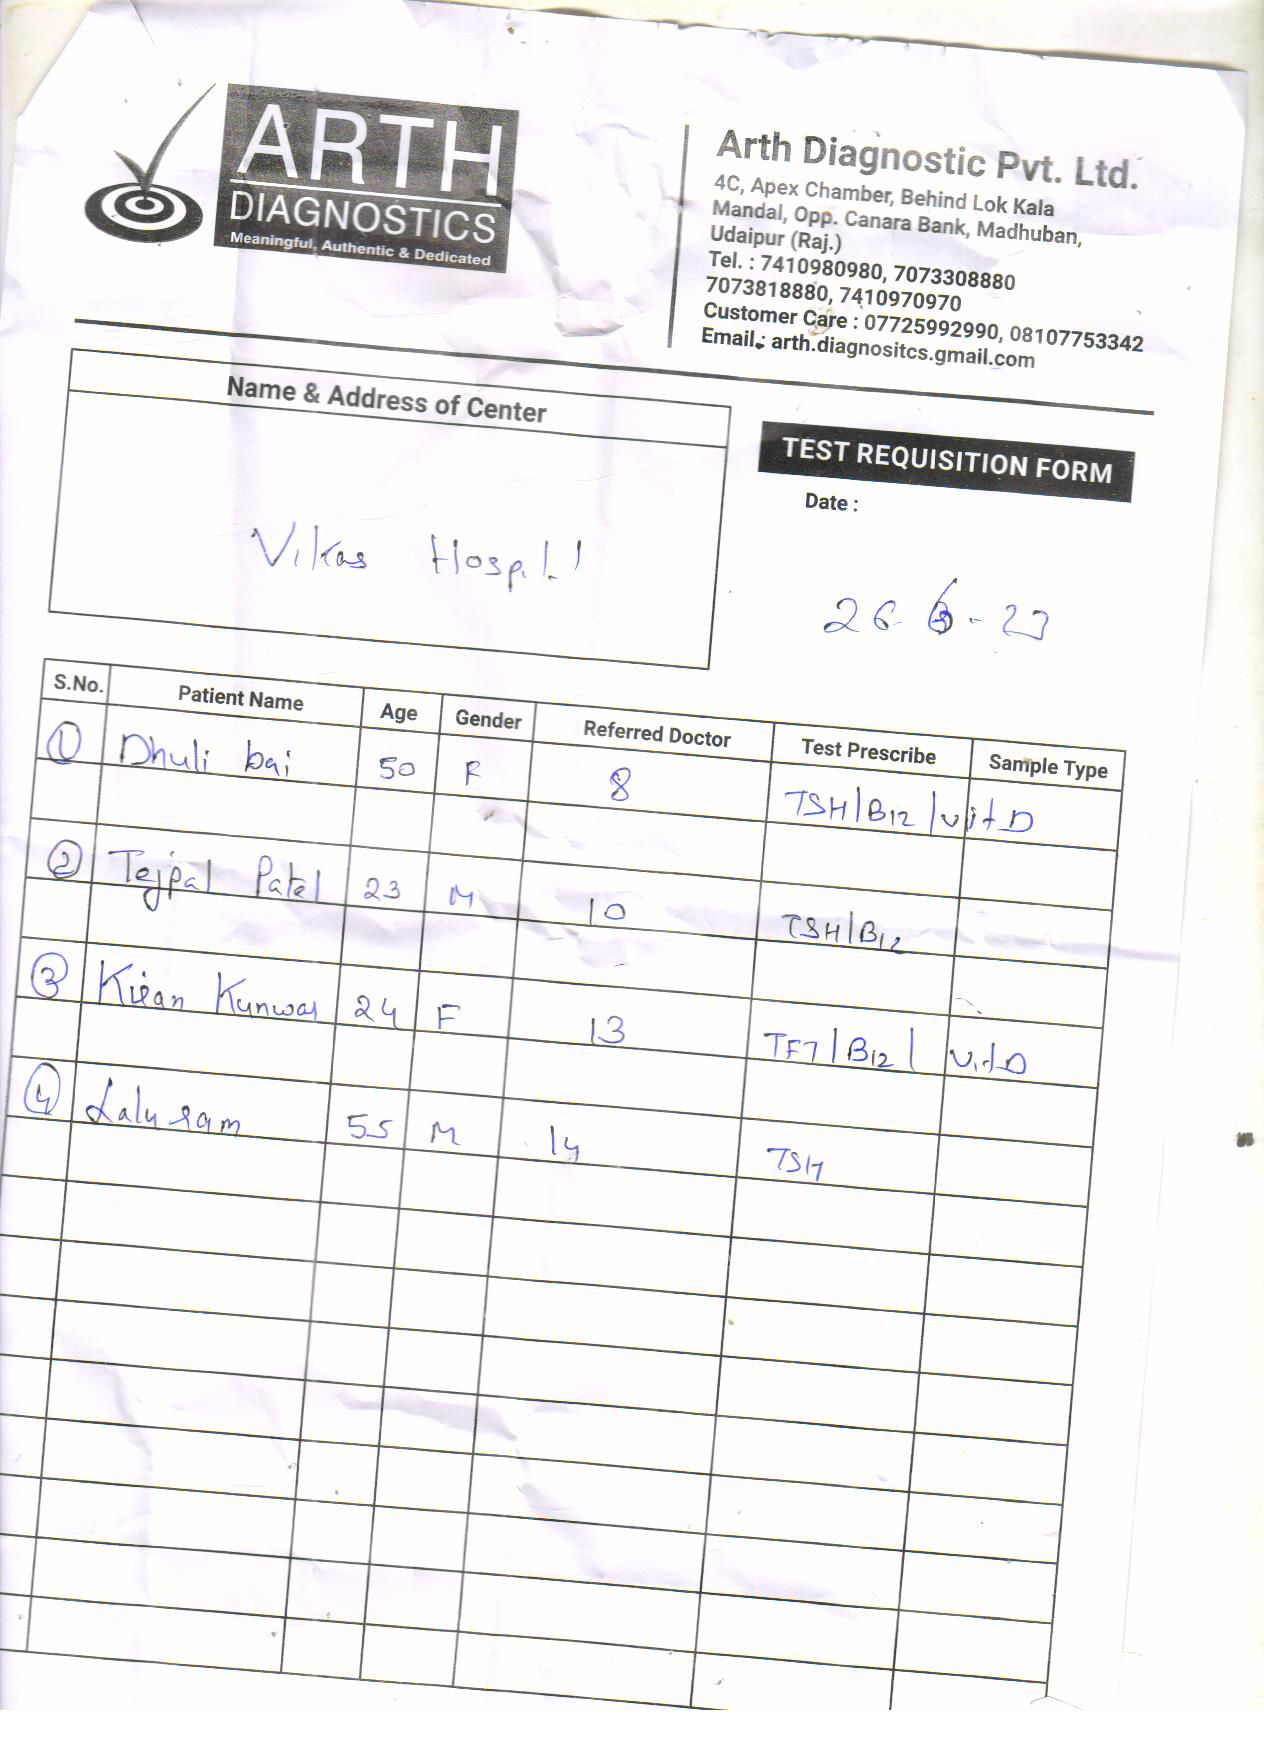 ARTH
DIAGNOSTICS
Meaningful, Authentic & Dedicated
Arth Diagnostic Pvt. Ltd.
4C, Apex Chamber, Behind Lok Kala
Mandal, Opp. Canara Bank, Madhuban,
Udaipur (Raj.)
Tel. : 7410980980, 7073308880
7073818880, 7410970970
Customer Care : 07725992990, 08107753342
Email : arth.diagnositcs.gmail.com
Name & Address of Center
Vikas Hospital
TEST REQUISITION FORM
Date :
26-6-23
S.No. Patient Name Age Gender Referred Doctor Test Prescribe Sample Type
1 Dhuli bai 50 F 8 TSH/B12/vitD
2 Tejpal Patel 23 M 10 TSH/B12
3 Kiran Kunwar 24 F 13 TFT/B12/ VitD
4 Laluram 55 M 14 TSH